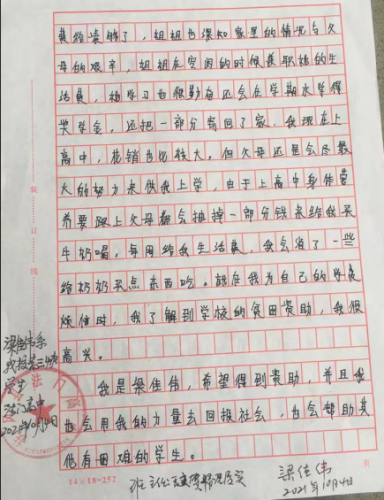 费的读够了，姐姐也深知家里的情况与父
母的艰辛，姐姐在空闲的时候兼职挣的生
活费，她学习也很勤奋还会在学期末学得
奖学金，还把一部分寄回了家，我现在上
高中，花销也比较大，但父母还是会尽最
大的努力来供我上学，由于上高中身体营
养要跟上父母都会抽掉一部分钱来给我买
牛奶喝，每周给我生活费，我会省了一些
给奶奶买点东西吃。就在我为自己的学费
烦恼时，我了解到学校的贫困资助，我很
高兴。
我是梁佳伟，希望得到资助，并且我
也会用我的力量去回报社会，也会帮助其
他有困难的学生。
装
订
线
梁佳伟系
我校高三
学生
高中
2021年10月4日
14×18=252
班主任
情况属实
梁佳伟
2021年10月4日